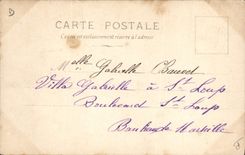 D
CARTE POSTALE
Ce côté est exclusivement réservé à l'adresse
Melle Gabrielle
Villa Gabrielle à St Loup
Boulevard St Loup
Banlieue de Marseille